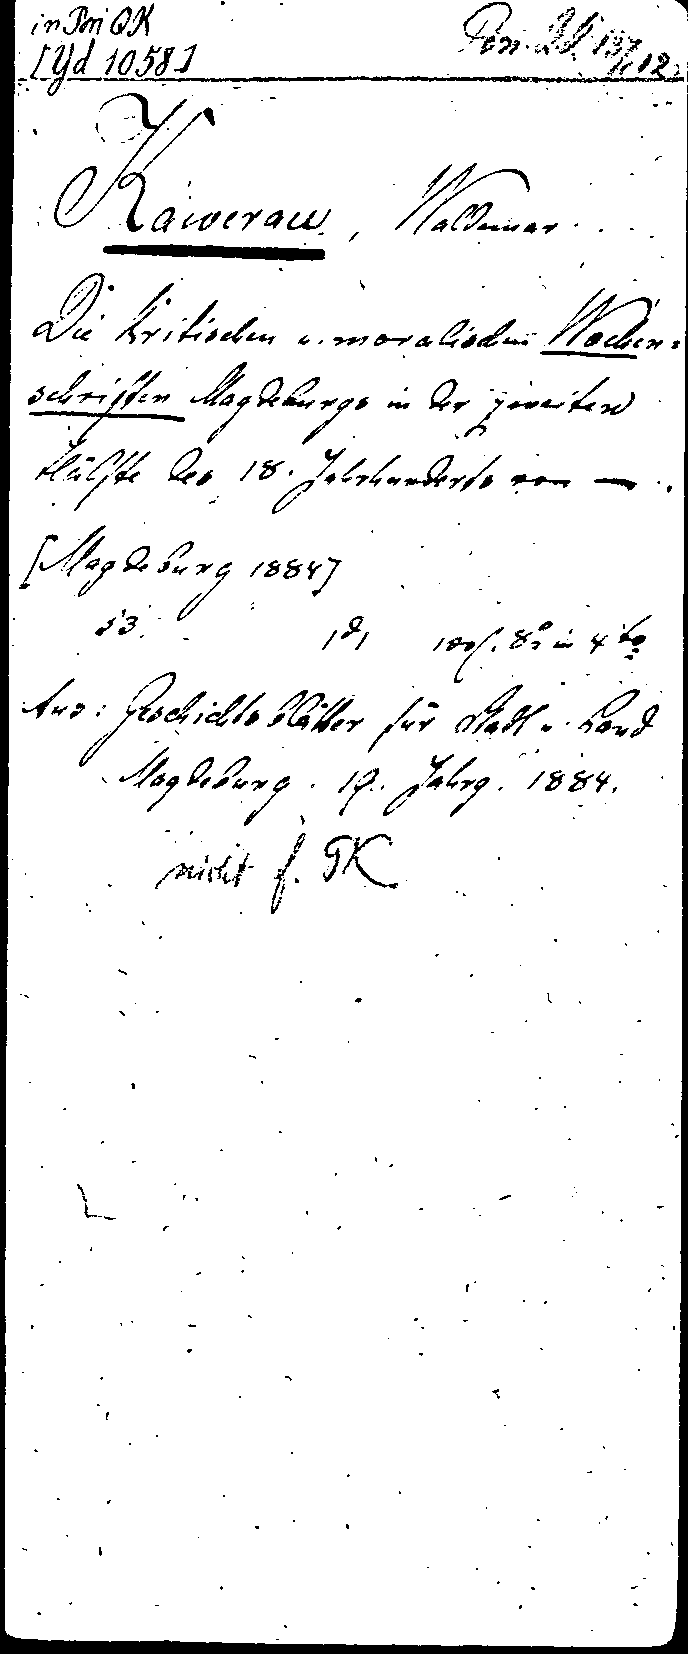 in Pon QK
[Yd 1058]
Pon
Kawerau, Waldemar
Die kritischen u. moralischen Wochen=
schriften Magdeburgs in der zweiten
Hälfte des 18. Jahrhunderts von —.
[Magdeburg 1884]
53. 8° in 4to
Aus: Geschichtsblätter für Stadt u. Land
Magdeburg. 19. Jahrg. 1884.
nicht f. GK